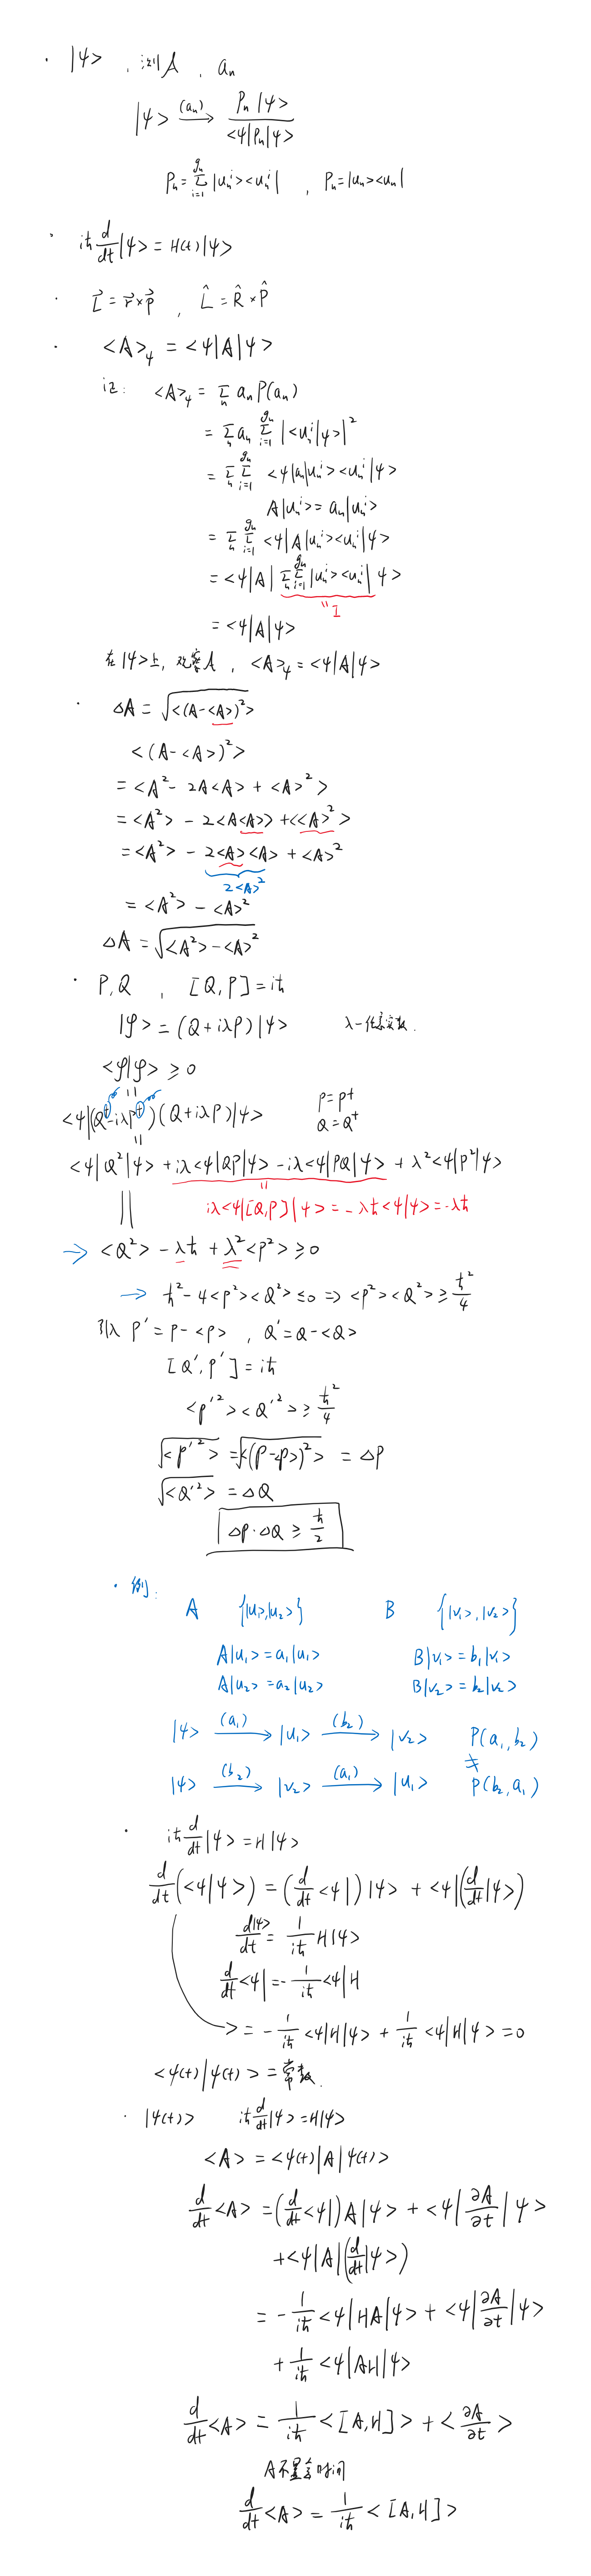 · |ψ> , 测A , aₙ
|ψ> —(aₙ)→ Pₙ|ψ> / <ψ|Pₙ|ψ>
Pₙ = Σ_{i=1}^{gₙ} |uₙⁱ><uₙⁱ| , Pₙ=|uₙ><uₙ|
· iħ d/dt |ψ> = H(t)|ψ>
· L⃗ = r⃗×p⃗ , L̂ = R̂×P̂
· <A>_ψ = <ψ|A|ψ>
证: <A>_ψ = Σₙ aₙ P(aₙ)
= Σₙ aₙ Σ_{i=1}^{gₙ} |<uₙⁱ|ψ>|²
= Σₙ Σ_{i=1}^{gₙ} <ψ|aₙ|uₙⁱ><uₙⁱ|ψ>
A|uₙⁱ> = aₙ|uₙⁱ>
= Σₙ Σ_{i=1}^{gₙ} <ψ|A|uₙⁱ><uₙⁱ|ψ>
= <ψ|A| Σₙ Σ_{i=1}^{gₙ} |uₙⁱ><uₙⁱ| ψ>
" I
= <ψ|A|ψ>
在|ψ>上, 观察A , <A>_ψ = <ψ|A|ψ>
· △A = √<(A-<A>)²>
<(A-<A>)²>
= <A² - 2A<A> + <A>²>
= <A²> - 2<A<A>> + <<A>²>
= <A²> - 2<A><A> + <A>²
2<A>²
= <A²> - <A>²
△A = √<A²>-<A>²
· P, Q , [Q,P]=iħ
|φ> = (Q+iλP)|ψ> λ-任意实数.
<φ|φ> ≥ 0
"
<ψ|(Q⁺-iλP⁺)(Q+iλP)|ψ> P=P⁺
Q=Q⁺
"
<ψ|Q²|ψ> + iλ<ψ|QP|ψ> - iλ<ψ|PQ|ψ> + λ²<ψ|P²|ψ>
"
|| iλ<ψ|[Q,P]|ψ> = -λħ<ψ|ψ> = -λħ
→ <Q²> - λħ + λ²<P²> ≥ 0
→ ħ²-4<P²><Q²> ≤ 0 ⇒ <P²><Q²> ≥ ħ²/4
引入 P′ = P-<P> , Q′=Q-<Q>
[Q′,P′] = iħ
<P′²><Q′²> ≥ ħ²/4
√<P′²> = √<(P-<P>)²> = △P
√<Q′²> = △Q
△P·△Q ≥ ħ/2
· 例:
A {|u₁>,|u₂>} B {|v₁>,|v₂>}
A|u₁>=a₁|u₁> B|v₁>=b₁|v₁>
A|u₂>=a₂|u₂> B|v₂>=b₂|v₂>
|ψ> —(a₁)→ |u₁> —(b₂)→ |v₂> P(a₁,b₂)
≠
|ψ> —(b₂)→ |v₂> —(a₁)→ |u₁> P(b₂,a₁)
· iħ d/dt |ψ> = H|ψ>
d/dt(<ψ|ψ>) = (d/dt<ψ|)|ψ> + <ψ|(d/dt|ψ>)
d|ψ>/dt = 1/iħ H|ψ>
d/dt<ψ| = -1/iħ <ψ|H
> = -1/iħ <ψ|H|ψ> + 1/iħ <ψ|H|ψ> = 0
<ψ(t)|ψ(t)> = 常数.
· |ψ(t)> iħ d/dt|ψ>=H|ψ>
<A> = <ψ(t)|A|ψ(t)>
d/dt<A> = (d/dt<ψ|)A|ψ> + <ψ|∂A/∂t|ψ>
+<ψ|A|(d/dt|ψ>)
= -1/iħ <ψ|HA|ψ> + <ψ|∂A/∂t|ψ>
+ 1/iħ <ψ|AH|ψ>
d/dt<A> = 1/iħ <[A,H]> + <∂A/∂t>
A不显含时间
d/dt<A> = 1/iħ <[A,H]>